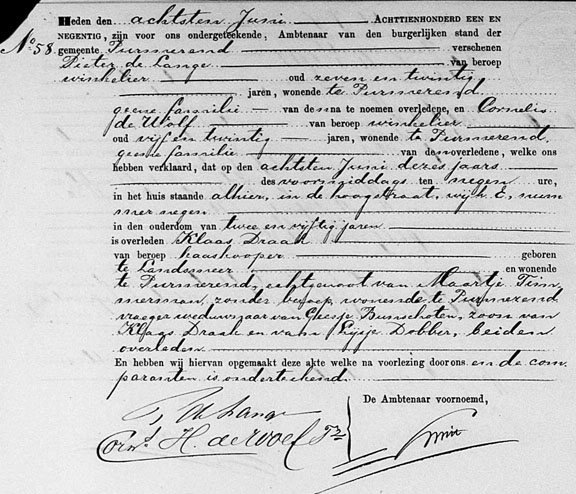 Heden den achtsten Juni ACHTTIENHONDERD EEN EN
No. 58. NEGENTIG, zijn voor ons ondergeteekende, Ambtenaar van den burgerlijken stand der
gemeente Purmerend verschenen
Pieter de Lange van beroep
winkelier oud zeven en twintig
jaren, wonende te Purmerend
geene familie van den na te noemen overledene, en Cornelis
de Wolf van beroep winkelier
oud vijf en twintig jaren, wonende te Purmerend,
geene familie van den overledene, welke ons
hebben verklaard, dat op den achtsten Juni dezes jaars
des voormiddags ten negen ure,
in het huis staande alhier, in de hoogstraat, wijk E, num
mer negen
in den ouderdom van twee en vijftig jaren
is overleden Klaas Draak
van beroep kaaskooper geboren
te Landsmeer en wonende
te Purmerend, echtgenoot van Maartje Tim
merman, zonder beroep, wonende te Purmerend
vroeger weduwnaar van Geesje Bunschoten, zoon van
Klaas Draak en van Lijsje Dobber, beiden
overleden
En hebben wij hiervan opgemaakt deze akte welke na voorlezing door ons en de com
paranten is onderteekend.
De Ambtenaar voornoemd,
P de Lange
Corns. H. de Wolf Jz
Smit